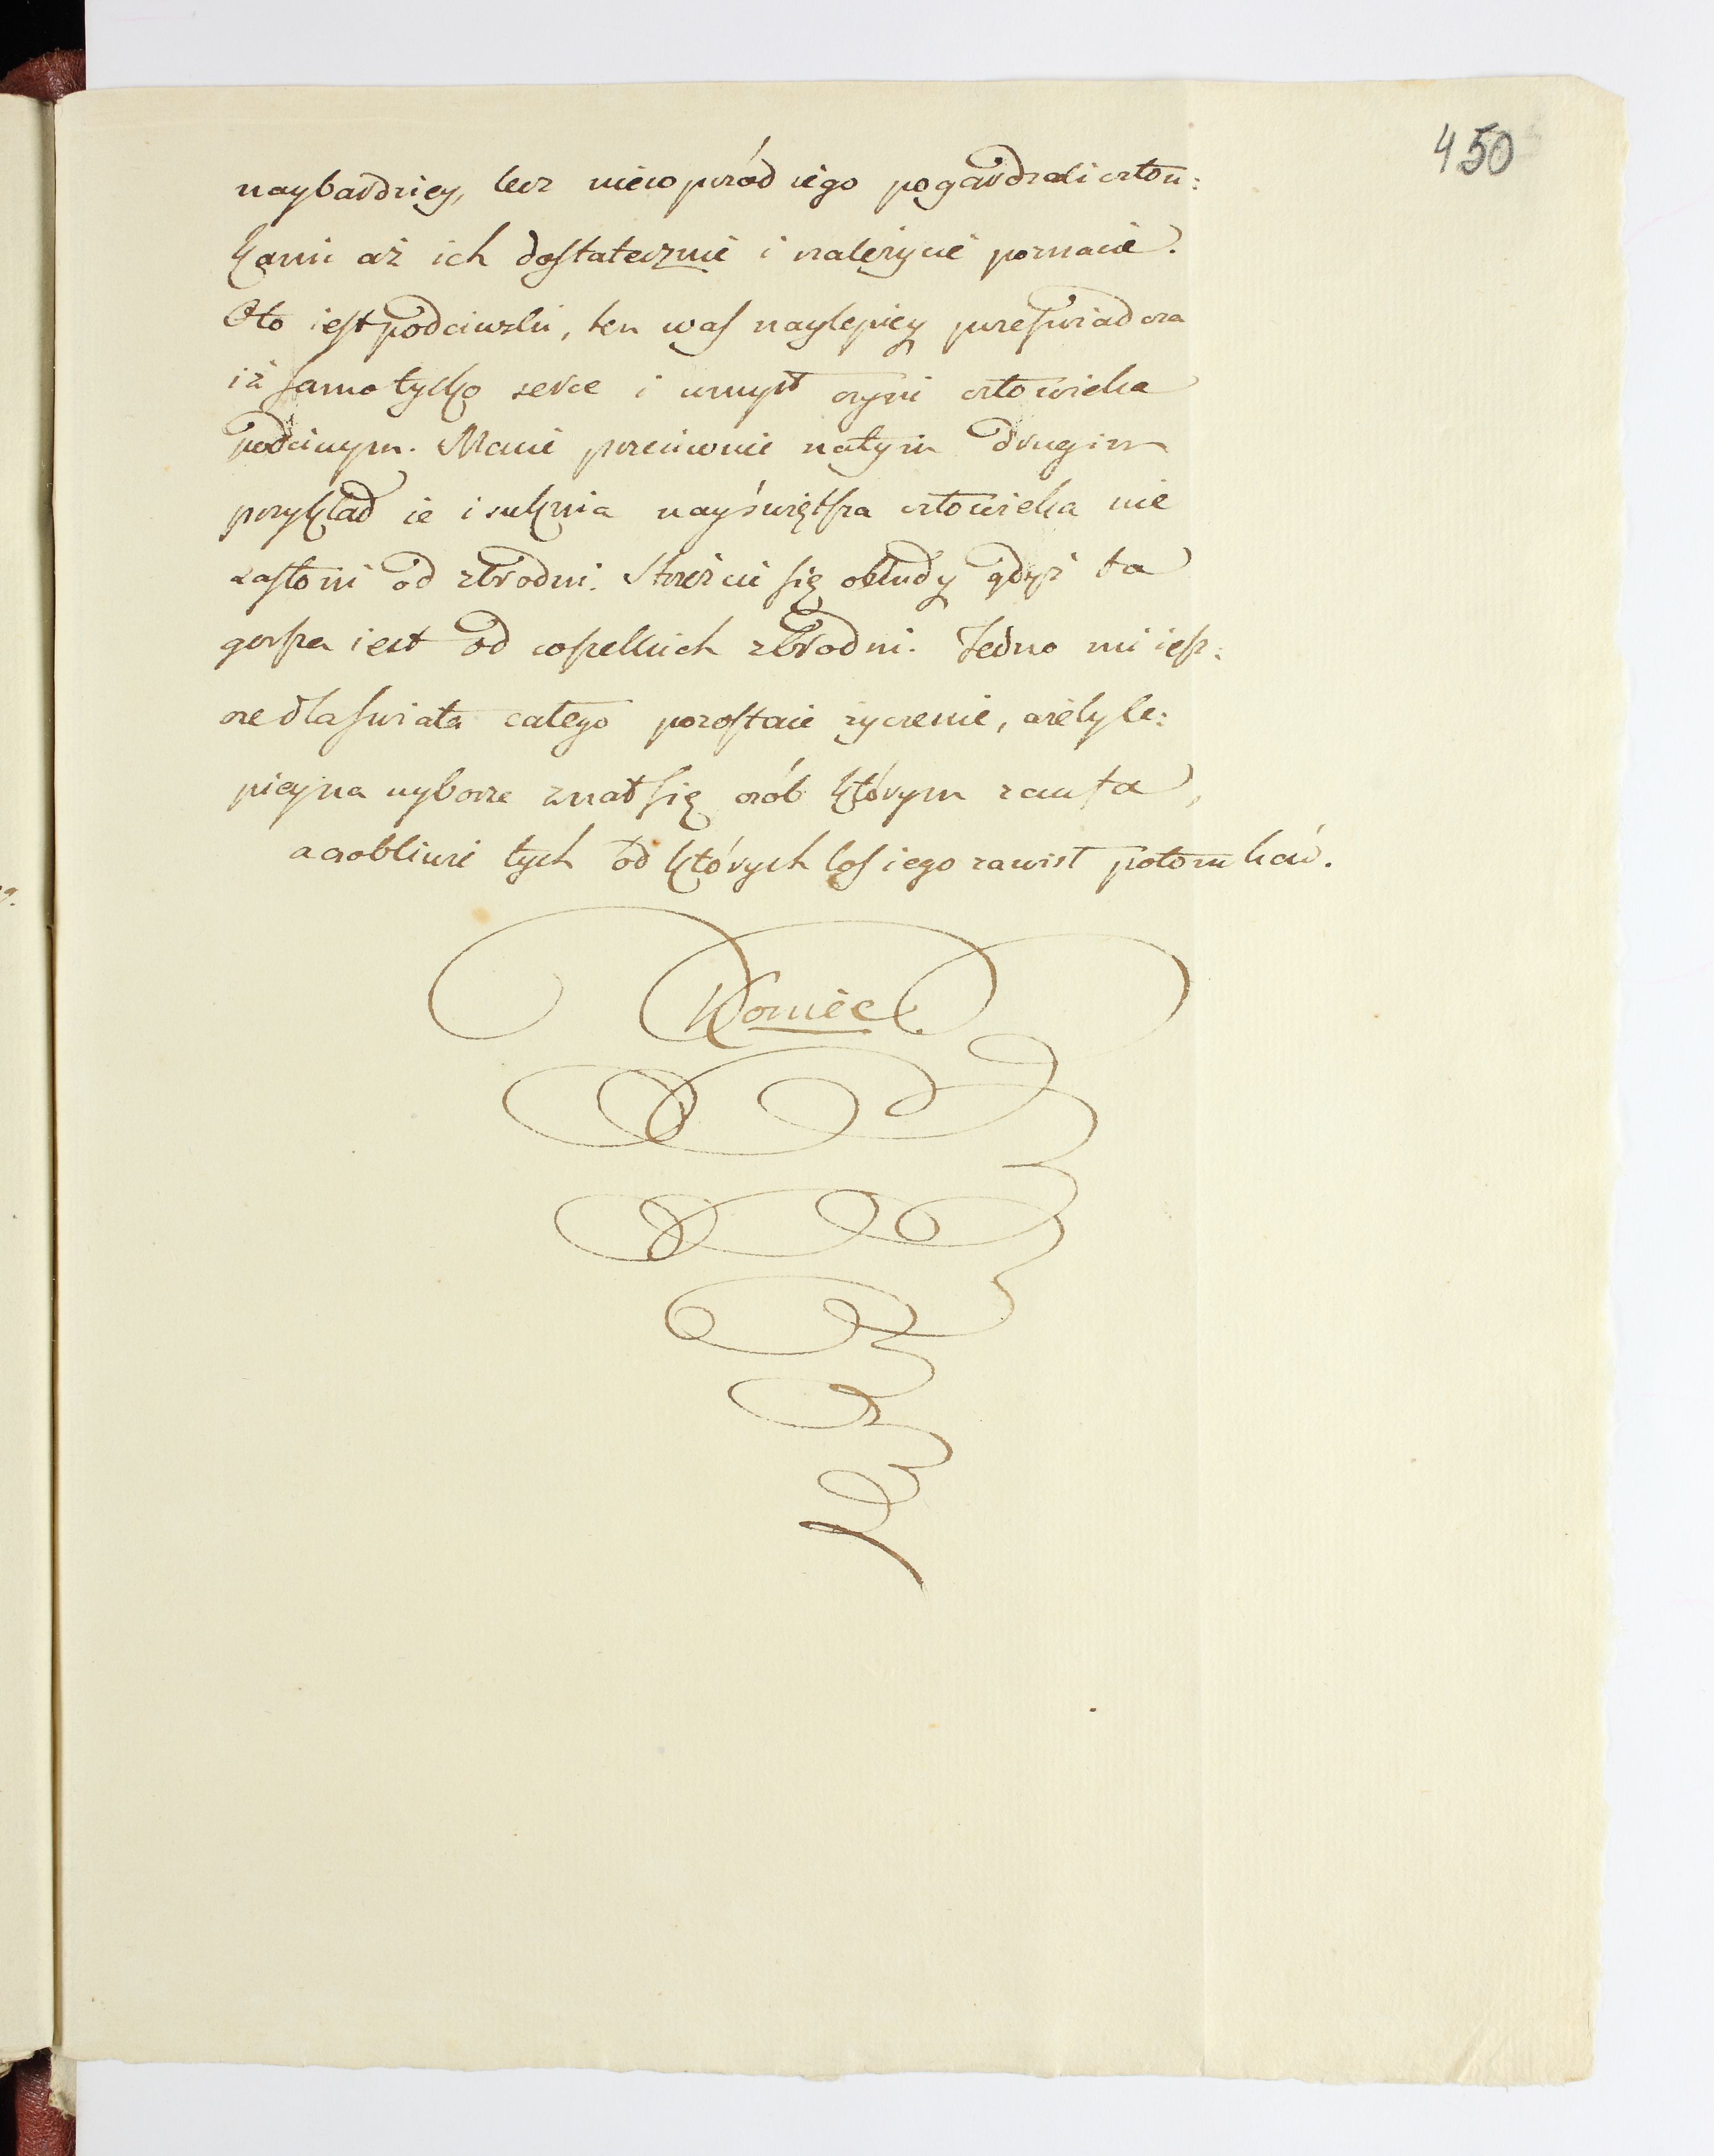 450
naybardziey, lecz niewprzód iego pogardzali człon:
kami aż ich dostatecznie i należycie poznacie.
Oto iest podciwski, ten was naylepiey przeświadcza
iż samo tylko serce i umysł czyni człowieka
podciwym. Macie przeciwnie natym drugim
przykład że i suknia nayświętsza człowieka nie
zasłoni od zbrodni. Strzeżcie się obłudy gdyż ta
gorsza iest od wszelkich zbrodni. Jedno mi iesz:
cze dla świata całego pozostaie życzenie, ażeby le:
piey na wyborze znał się osób którym zaufa,
a osobliwie tych od których los iego zawisł potomków.
Koniec.